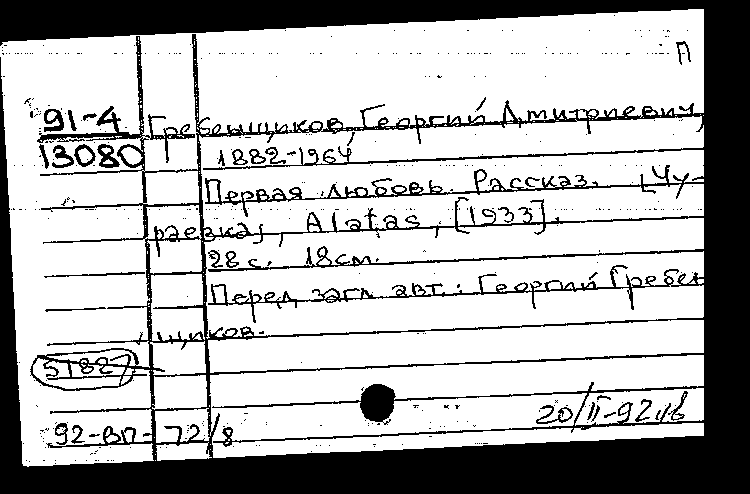 П
91-4 Гребенщиков, Георгий Дмитриевич,
13080 1882-1964
Первая любовь. Рассказ. [Чу-
раевка], Alatas, [1933].
28 с. 18 см.
Перед загл. авт.: Георгий Гребен
щиков.
57827
92-ВП-72/8 20/II-92